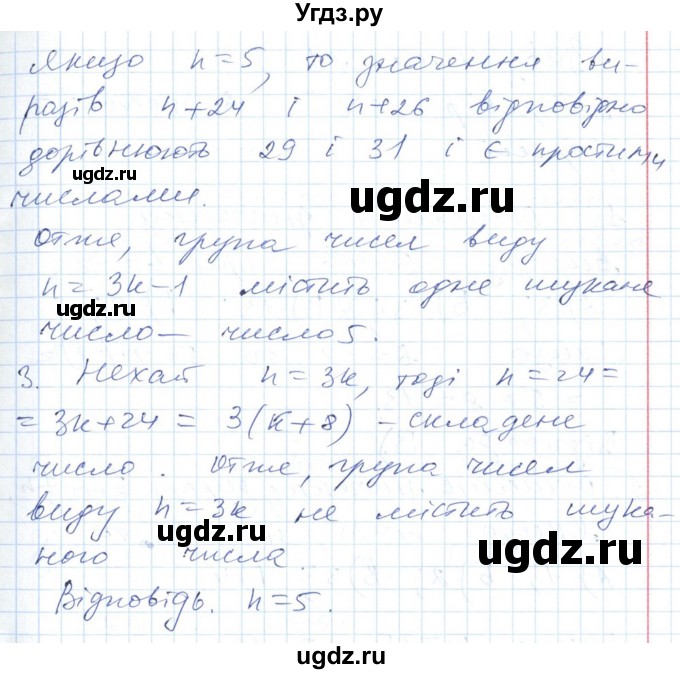 Угдз.ру
Якщо n=5, то значення ви-
разів n+24 і n+26 відповідно
дорівнюють 29 і 31 і є простими
ugdz.ru
числами.
ugdz.ru
Отже, група чисел виду
n=3k-1 містить одне шукане
ugdz.ru
число — число 5.
ugdz.ru
3. Нехай n=3k, тоді n=24=
=3k+24 = 3(k+8) - складене
ugdz.ru
число. Отже, група чисел
виду n=3k не містить шука-
ugdz.ru
ного числа.
ugdz.ru
Відповідь. n=5.
ugdz.ru
ugdz.ru